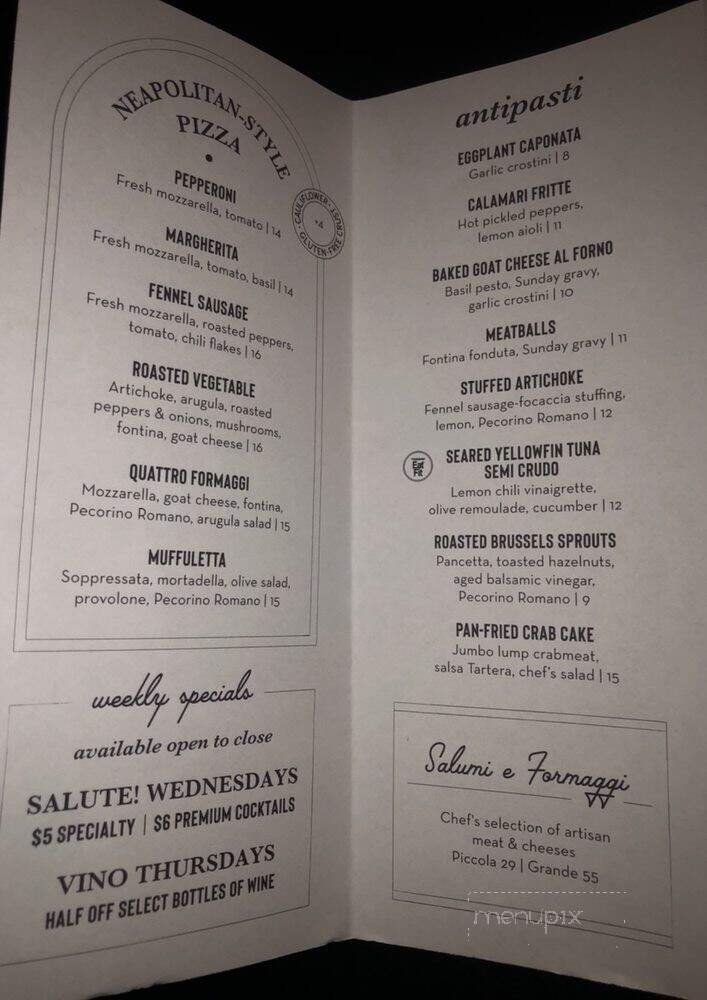 NEAPOLITAN-STYLE
PIZZA
PEPPERONI
Fresh mozzarella, tomato | 14
CAULIFLOWER • GLUTEN-FREE CRUST •
+4
MARGHERITA
Fresh mozzarella, tomato, basil | 14
FENNEL SAUSAGE
Fresh mozzarella, roasted peppers,
tomato, chili flakes | 16
ROASTED VEGETABLE
Artichoke, arugula, roasted
peppers & onions, mushrooms,
fontina, goat cheese | 16
QUATTRO FORMAGGI
Mozzarella, goat cheese, fontina,
Pecorino Romano, arugula salad | 15
MUFFULETTA
Soppressata, mortadella, olive salad,
provolone, Pecorino Romano | 15
weekly specials
available open to close
SALUTE! WEDNESDAYS
$5 SPECIALTY | $6 PREMIUM COCKTAILS
VINO THURSDAYS
HALF OFF SELECT BOTTLES OF WINE
antipasti
EGGPLANT CAPONATA
Garlic crostini | 8
CALAMARI FRITTE
Hot pickled peppers,
lemon aioli | 11
BAKED GOAT CHEESE AL FORNO
Basil pesto, Sunday gravy,
garlic crostini | 10
MEATBALLS
Fontina fonduta, Sunday gravy | 11
STUFFED ARTICHOKE
Fennel sausage-focaccia stuffing,
lemon, Pecorino Romano | 12
SEARED YELLOWFIN TUNA
SEMI CRUDO
Lemon chili vinaigrette,
olive remoulade, cucumber | 12
ROASTED BRUSSELS SPROUTS
Pancetta, toasted hazelnuts,
aged balsamic vinegar,
Pecorino Romano | 9
PAN-FRIED CRAB CAKE
Jumbo lump crabmeat,
salsa Tartera, chef's salad | 15
Salumi e Formaggi
Chef's selection of artisan
meat & cheeses
Piccola 29 | Grande 55
menupix